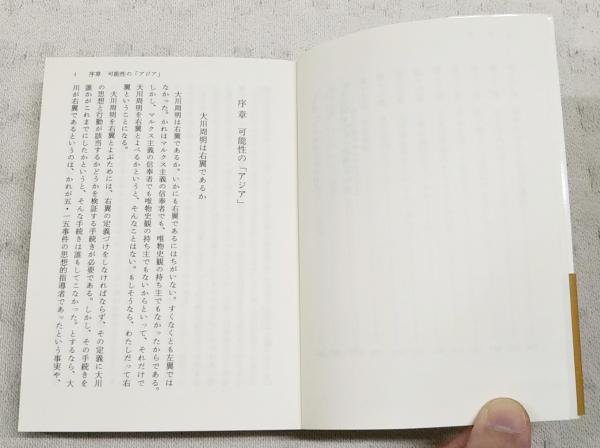 1　序章　可能性の「アジア」
序章　可能性の「アジア」
大川周明は右翼であるか
大川周明は右翼であるか。いかにも右翼であるにはちがいない。すくなくとも左翼では
なかった。かれはマルクス主義の信奉者でも、唯物史観の持ち主でもなかったからである。
しかし、マルクス主義の信奉者でも唯物史観の持ち主でもないからといって、それだけで
大川周明を右翼とよべるかというと、そんなことはない。もしそうなら、わたしだって右
翼ということになる。
大川周明を右翼とよぶためには、右翼の定義づけをしなければならず、その定義に大川
の思想と行動が該当するかどうかを検証する手続きが必要である。しかし、その手続きを
誰かがこれまでにしたかというと、そんな手続きは誰もしてこなかった。とするなら、大
川が右翼であるというのは、かれが五・一五事件の思想的指導者であったという事実や、